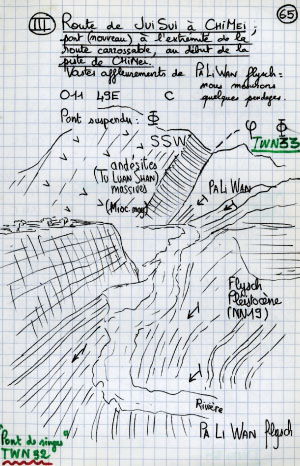 65
III Route de JUI SUI à CHIMEI,
pont (nouveau) à l'extrémité de la
route carrossable, au début de la
piste de CHIMEI.
Vastes affleurements de PA LI WAN flysch :
nous montrons
quelques pendages.
O11 49E C
Pont suspendu : Φ
SSW
φ Φ
TWN33
andésites
(TU LUAN SHAN)
massives
(Mioc. moy)
PA LI WAN
Flysch
Pleistocène
(NN19)
Rivière
"Pont de singes"
TWN 32
PA LI WAN flysch